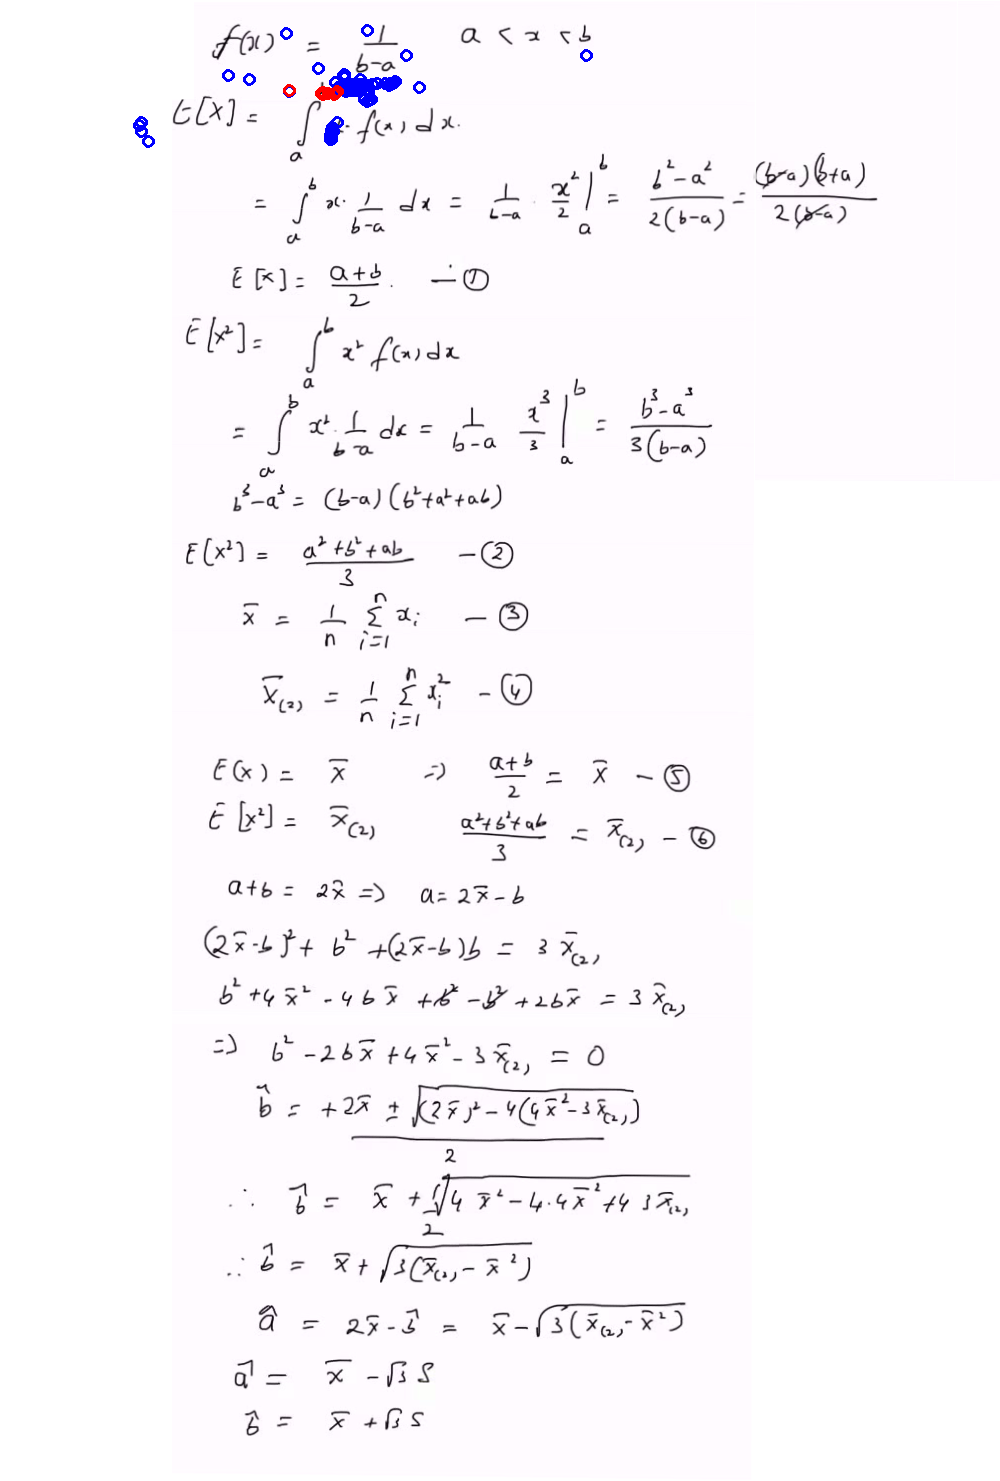 f(x) = 1/(b-a)   a < x < b
E[X] = ∫_a f(x) dx.
= ∫_a^b x · 1/(b-a) dx = 1/(b-a) · x²/2 |_a^b = (b²-a²)/(2(b-a)) = (b-a)(b+a)/(2(b-a))
E[x] = (a+b)/2 . — ①
E[x²] = ∫_a^b x² f(x) dx
= ∫_a^b x² · 1/(b-a) dx = 1/(b-a) x³/3 |_a^b = (b³-a³)/(3(b-a))
b³-a³ = (b-a)(b²+a²+ab)
E[x²] = (a²+b²+ab)/3 — ②
x̄ = 1/n Σ_{i=1}^n x_i — ③
x̄_(2) = 1/n Σ_{i=1}^n x_i² — ④
E(x) = x̄ => (a+b)/2 = x̄ — ⑤
E[x²] = x̄_(2)   (a²+b²+ab)/3 = x̄_(2) — ⑥
a+b = 2x̄ => a = 2x̄-b
(2x̄-b)² + b² + (2x̄-b)b = 3 x̄_(2)
b² + 4x̄² - 4bx̄ + b² - b² + 2bx̄ = 3 x̄_(2)
=> b² - 2bx̄ + 4x̄² - 3x̄_(2) = 0
b̂ = (+2x̄ ± √((2x̄)² - 4(4x̄² - 3x̄_(2))))/2
∴ b̂ = x̄ + √(4x̄² - 4·4x̄² + 4 3x̄_(2))/2
∴ b̂ = x̄ + √(3(x̄_(2) - x̄²))
â = 2x̄ - b̂ = x̄ - √(3(x̄_(2) - x̄²))
â = x̄ - √3 S
b̂ = x̄ + √3 S